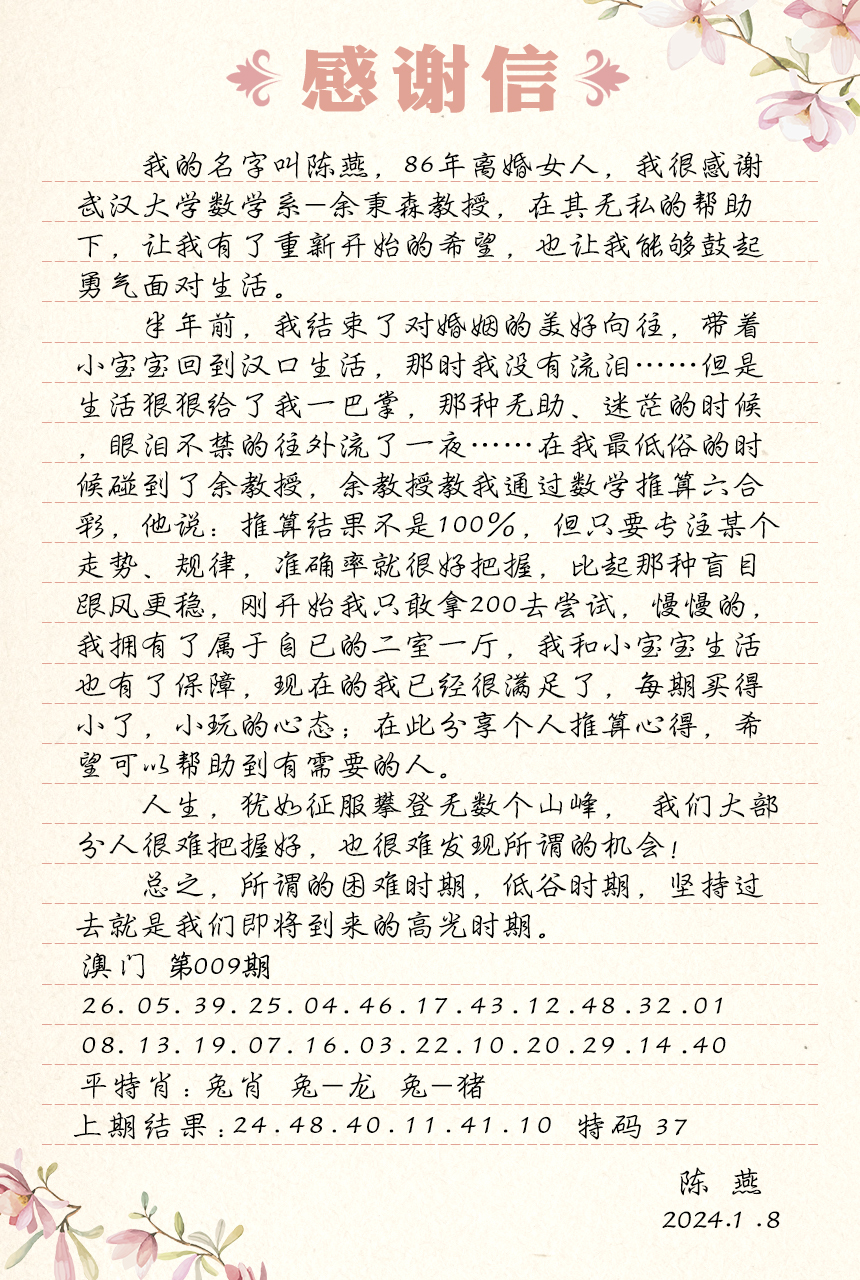 感谢信
我的名字叫陈燕，86年离婚女人，我很感谢
武汉大学数学系—余秉森教授，在其无私的帮助
下，让我有了重新开始的希望，也让我能够鼓起
勇气面对生活。
半年前，我结束了对婚姻的美好向往，带着
小宝宝回到汉口生活，那时我没有流泪……但是
生活狠狠给了我一巴掌，那种无助、迷茫的时候
，眼泪不禁的往外流了一夜……在我最低俗的时
候碰到了余教授，余教授教我通过数学推算六合
彩，他说：推算结果不是100%，但只要专注某个
走势、规律，准确率就很好把握，比起那种盲目
跟风更稳，刚开始我只敢拿200去尝试，慢慢的，
我拥有了属于自已的二室一厅，我和小宝宝生活
也有了保障，现在的我已经很满足了，每期买得
小了，小玩的心态；在此分享个人推算心得，希
望可以帮助到有需要的人。
人生，犹如征服攀登无数个山峰， 我们大部
分人很难把握好，也很难发现所谓的机会！
总之，所谓的困难时期，低谷时期，坚持过
去就是我们即将到来的高光时期。
澳门 第009期
26.05.39.25.04.46.17.43.12.48.32.01
08.13.19.07.16.03.22.10.20.29.14.40
平特肖：兔肖 兔—龙 兔—猪
上期结果：24.48.40.11.41.10 特码 37
陈 燕
2024.1.8